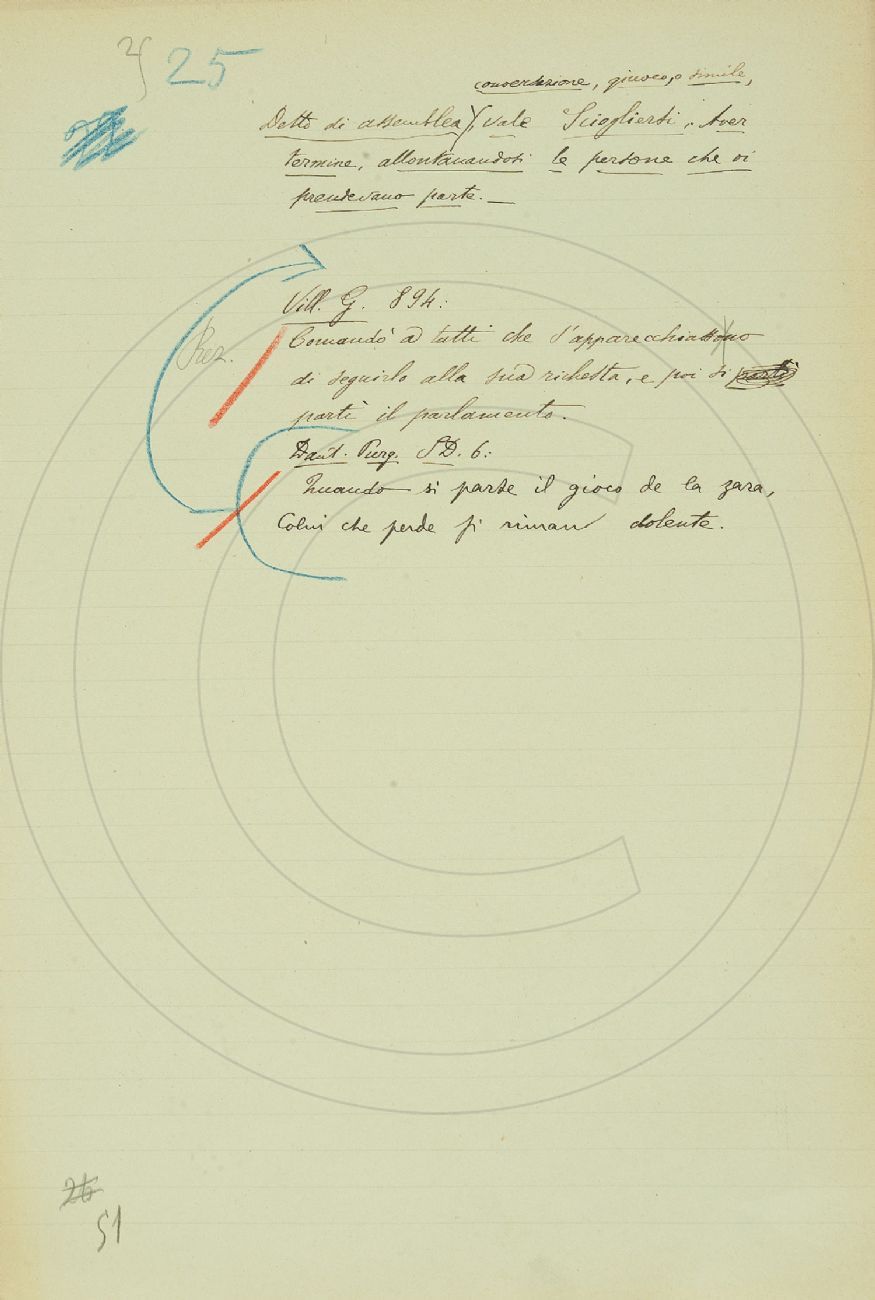 25
conversazione, giuoco, o simile,
Detto di assemblea, vale Sciogliersi, Aver
termine, allontanandosi le persone che vi
prendevano parte. —
Vill. G. 894:
Comandò a tutti che s'apparecchiassono
di seguirlo alla sua richesta, e poi si partì
partì il parlamento.
Dant. Purg. 6:
Quando si parte il gioco de la zara,
Colui che perde si riman dolente.
26
51